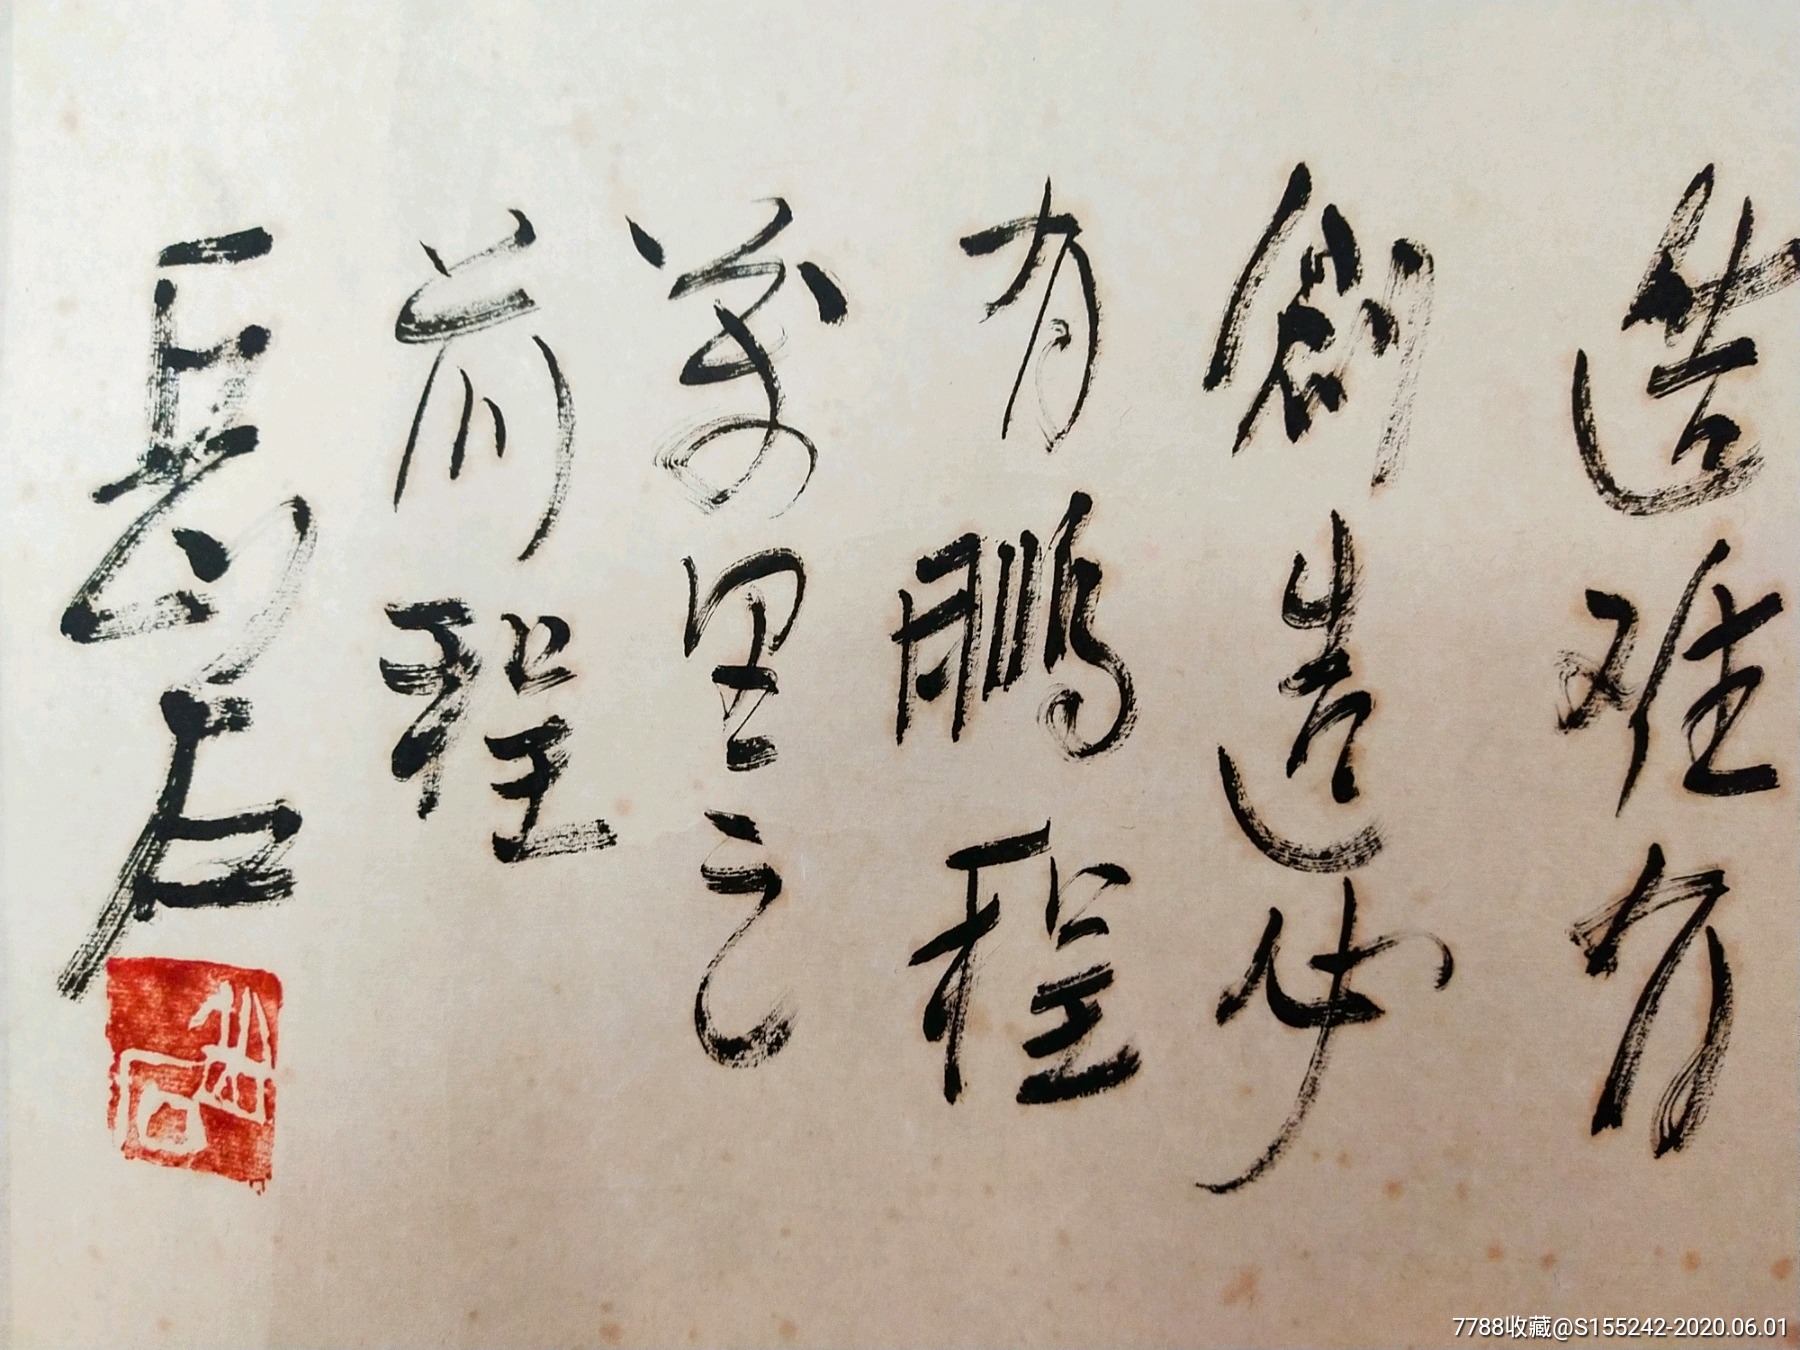 造难有
創造必
有鵬程
萬里之
前程
石
7788收藏@S155242-2020.06.01